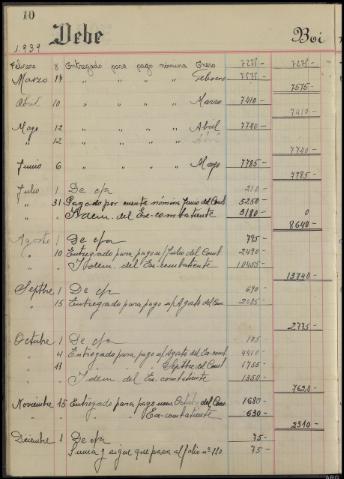 10
1.939
Debe
Boi
Febrero 8 Entregado para pago nómina Enero 7275- 7275-
Marzo 14 " " " " Febrero 7575-
7575-
Abril 10 " " " " Marzo 7410-
7410-
Mayo 12 " " " " Abril 7740-
" 12 " " " "
7740-
Junio 6 " " " " Mayo 7785-
7785-
Julio 1 De c/a 210-
" 31 Pagado por cuenta nómina Junio del Comt. 5250-
" " Idem. del Ex-combatiente 3180- 0
8640-
Agosto 1 De c/a 795-
" 10 Entregado para pago n/ Julio del Comt 2490-
" " Idem. del Ex-combatiente 10455-
13740-
Septbre 1 De c/a 690-
" 15 Entregado para pago n/ Agosto del 2085-
2775-
Octubre 1 De c/a 105-
" 4 Entregado para pago n/ Agosto del Ex-comt 4410-
" 11 " " " Septbre del Comt 1755-
" " Idem del Ex-combatiente 1350-
7620-
Noviembre 15 Entregado para pago Octubre del Comt 1680-
" " " " Ex-combatiente 630-
2310-
Diciembre 1 De c/a 75-
Suma y sigue que pasa al folio nº 110 75-